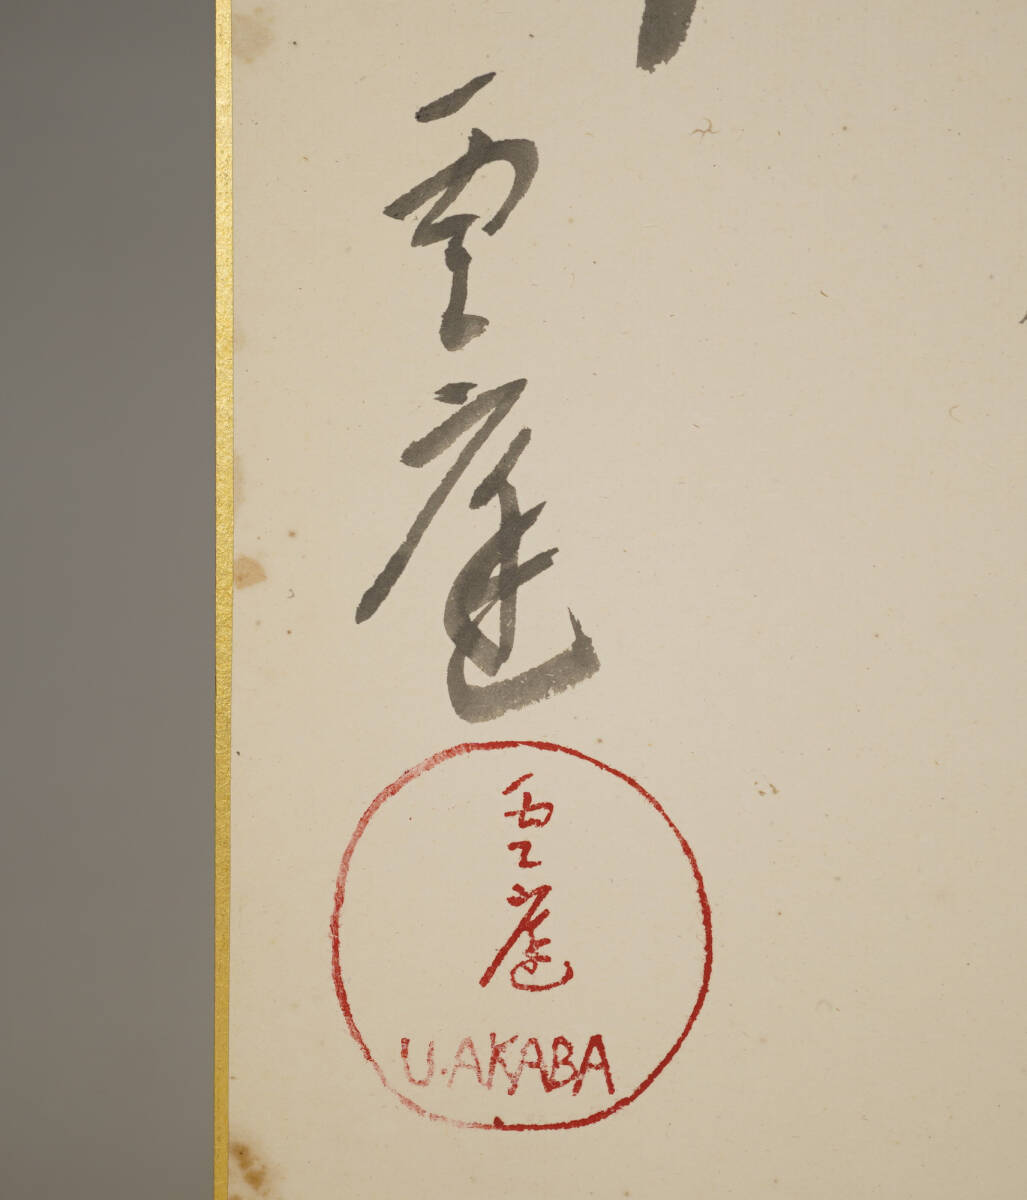 雲庭
雲庭
U.AKABA